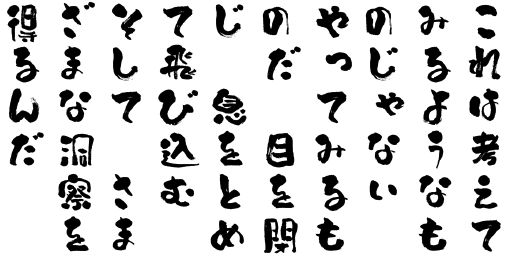 これは考えて
みるようなも
のじゃない
やってみるも
のだ　目を閉
じ　息をとめ
て飛び込む
そして　さま
ざまな洞察を
得るんだ